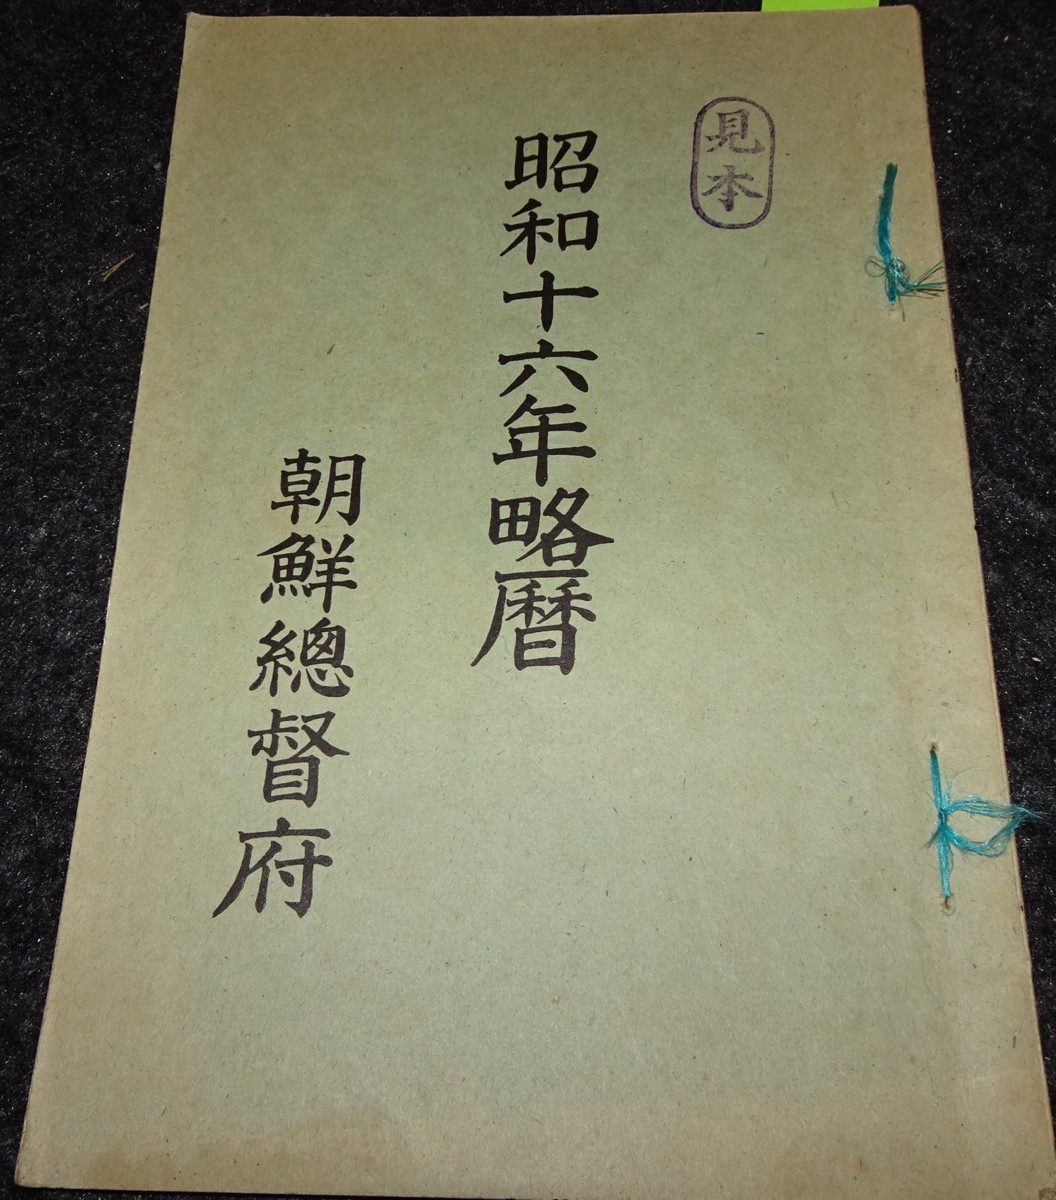 見本
昭和十六年略曆
朝鮮總督府